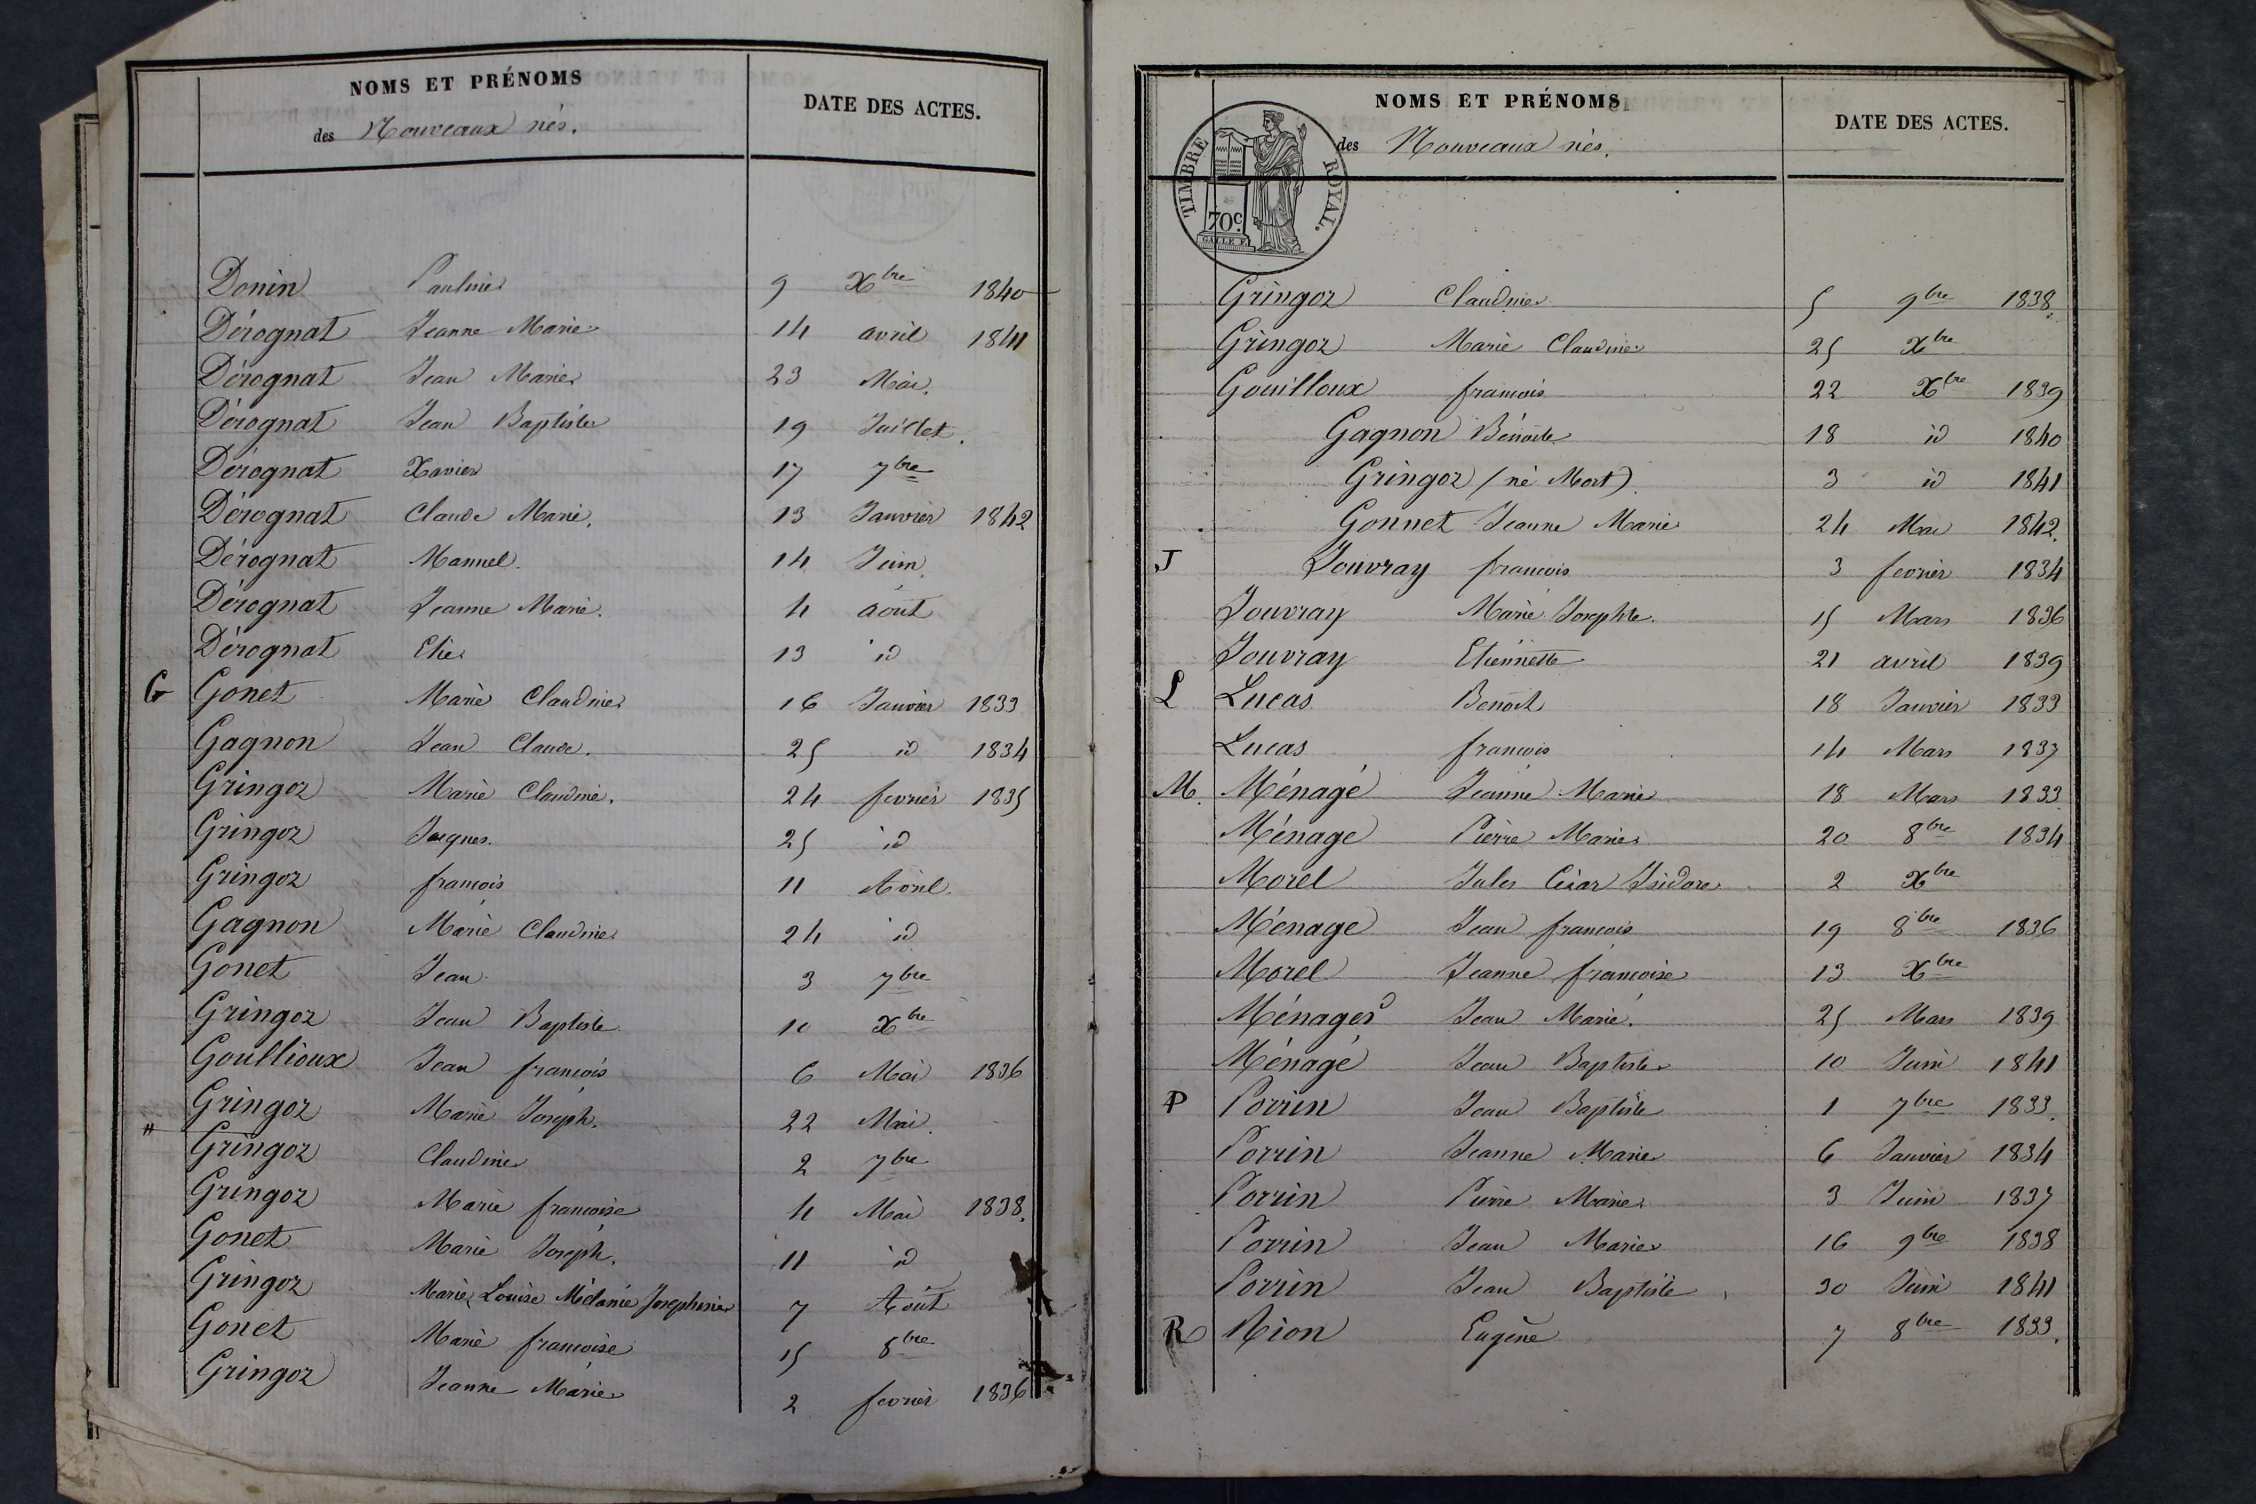 NOMS ET PRÉNOMS
des Nouveaux nés.
DATE DES ACTES.
Donin Pauline 9 Xbre 1840
Dérognat Jeanne Marie 14 avril 1841
Dérognat Jean Marie 23 Mai.
Dérognat Jean Baptiste 19 Juillet.
Dérognat Xavier 17 7bre
Dérognat Claude Marie. 13 Janvier 1842
Dérognat Manuel. 14 Juin
Dérognat Jeanne Marie. 4 août
Dérognat Elie 13 id
G Gonet Marie Claudine 16 Janvier 1833
Gagnon Jean Claude. 25 id 1834
Gringoz Marie Claudine. 24 fevrier 1835
Gringoz Jacques. 25 id
Gringoz francois 11 Avril.
Gagnon Marie Claudine 24 id
Gonet Jean 3 7bre
Gringoz Jean Baptiste 10 Xbre
Goullioux Jean francois 6 Mai 1836
Gringoz Marie Joseph. 22 Mai.
Gringoz Claudine 2 7bre
Gringoz Marie francoise 4 Mai 1838.
Gonet Marie Joseph. 11 id
Gringoz Marie Louise Mélanie Josephine 7 Août
Gonet Marie francoise 15 8bre
Gringoz Jeanne Marie 2 fevrier 1836
NOMS ET PRÉNOMS
des Nouveaux nés.
DATE DES ACTES.
TIMBRE ROYAL.
70c.
Gringoz Claudine 5 9bre 1838.
Gringoz Marie Claudine 25 Xbre
Gouilloux francois 22 Xbre 1839
Gagnon Bénoite 18 id 1840
Gringoz (né Mort) 3 id 1841
Gonnet Jeanne Marie 24 Mai 1842.
J Jouvray francois 3 fevrier 1834
Jouvray Marie Josephte. 15 Mars 1836
Jouvray Etiennette 21 avril 1839
L Lucas Benoit 18 Janvier 1833
Lucas francois 14 Mars 1837
M. Ménagé Jeanne Marie 18 Mars 1833.
Ménage Pierre Marie 20 8bre 1834
Morel Jules César Isidore 2 Xbre
Ménage Jean francois 19 8bre 1836
Morel Jeanne francoise 13 Xbre
Ménager Jean Marie. 25 Mars 1839
Ménagé Jean Baptiste 10 Juin 1841
P Porrin Jean Baptiste 1 7bre 1833.
Porrin Jeanne Marie 6 Janvier 1834
Porrin Pierre Marie 3 Juin 1837
Porrin Jean Marie 16 9bre 1838
Porrin Jean Baptiste 30 Juin 1841
R Rion Eugène 7 8bre 1833.